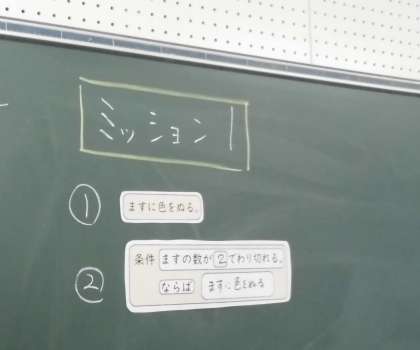 ミッション1
① ますに色をぬる。
② 条件 ますの数が2でわり切れる。
ならば ますに色をぬる